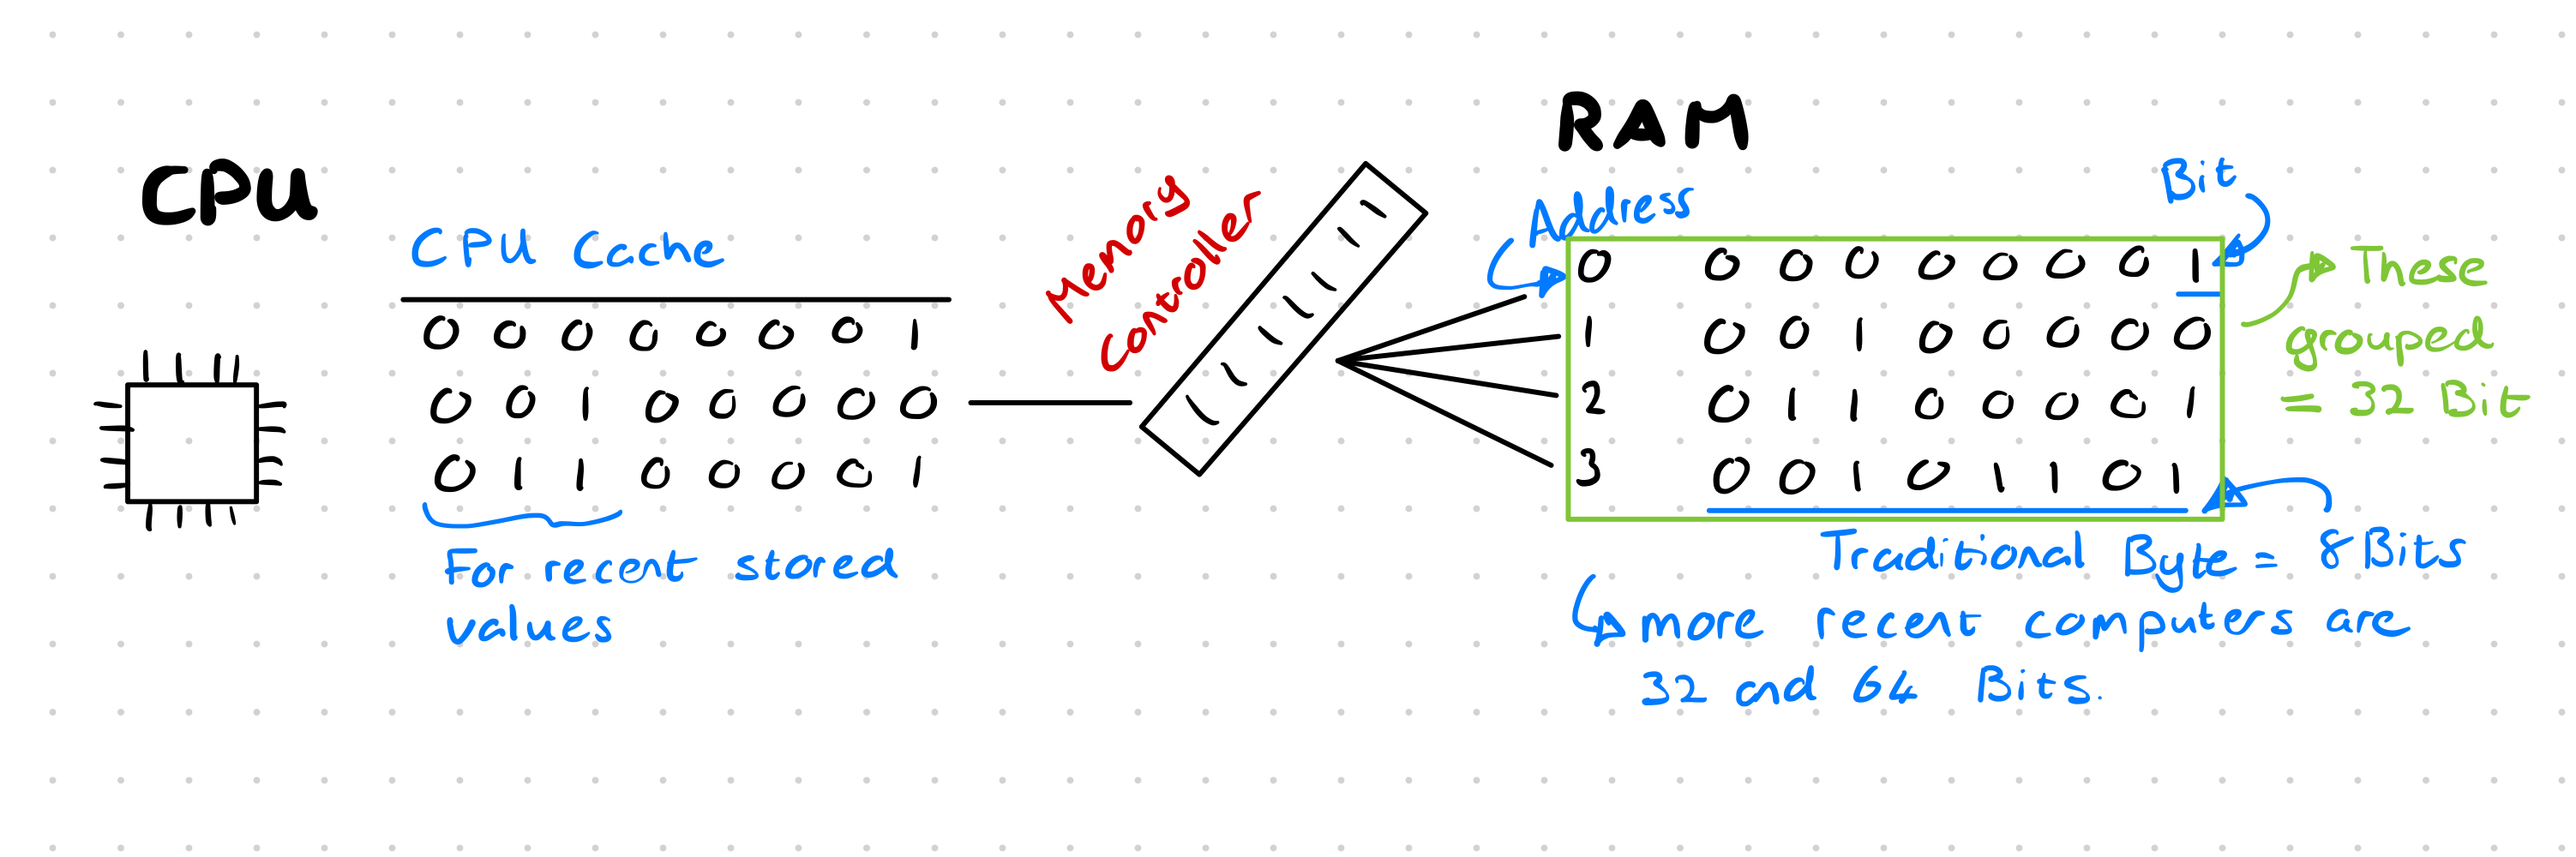 CPU
CPU Cache
0 0 0 0 0 0 0 1
0 0 1 0 0 0 0 0
0 1 1 0 0 0 0 1
For recent stored
values
Memory
Controller
RAM
Address
Bit
0 0 0 0 0 0 0 0 1
1 0 0 1 0 0 0 0 0
2 0 1 1 0 0 0 0 1
3 0 0 1 0 1 1 0 1
These
grouped
= 32 Bit
Traditional Byte = 8 Bits
more recent computers are
32 and 64 Bits.